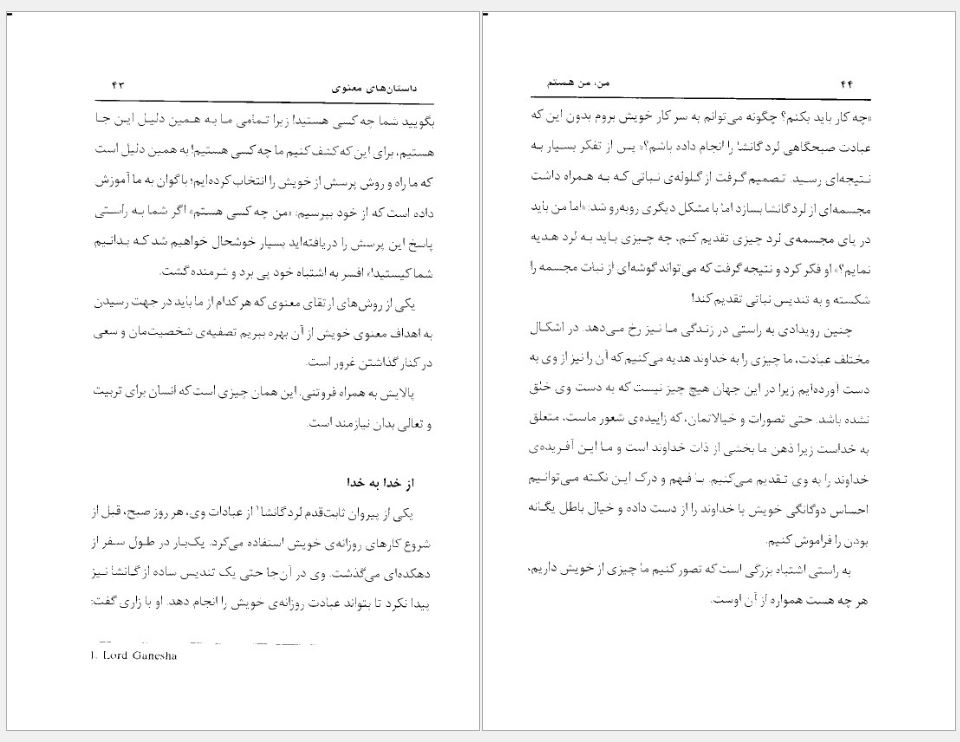 داستان‌های معنوی ۴۳
بگویید شما چه کسی هستید! زیرا تمامی ما به همین دلیل این جا
هستیم، برای این که کشف کنیم ما چه کسی هستیم! به همین دلیل است
که ما راه و روش پرسش از خویش را انتخاب کرده‌ایم؛ باگوان به ما آموزش
داده است که از خود بپرسیم: «من چه کسی هستم» اگر شما به راستی
پاسخ این پرسش را دریافته‌اید بسیار خوشحال خواهیم شد که بدانیم
شما کیستید!» افسر به اشتباه خود پی برد و شرمنده گشت.
یکی از روش‌های ارتقای معنوی که هر کدام از ما باید در جهت رسیدن
به اهداف معنوی خویش از آن بهره ببریم تصفیه‌ی شخصیت‌مان و سعی
در کنار گذاشتن غرور است.
پالایش به همراه فروتنی. این همان چیزی است که انسان برای تربیت
و تعالی بدان نیازمند است.
از خدا به خدا
یکی از پیروان ثابت‌قدم لرد گانشا۱ از عبادات وی، هر روز صبح، قبل از
شروع کارهای روزانه‌ی خویش استفاده می‌کرد. یک‌بار در طول سفر از
دهکده‌ای می‌گذشت. وی در آن‌جا حتی یک تندیس ساده از گانشا نیز
پیدا نکرد تا بتواند عبادت روزانه‌ی خویش را انجام دهد. او با زاری گفت:
1. Lord Ganesha
۴۴ من، من هستم
«چه کار باید بکنم؟ چگونه می‌توانم به سر کار خویش بروم بدون این که
عبادت صبحگاهی لرد گانشا را انجام داده باشم؟» پس از تفکر بسیار به
نتیجه‌ای رسید. تصمیم گرفت از گلوله‌ی نباتی که به همراه داشت
مجسمه‌ای از لرد گانشا بسازد اما با مشکل دیگری روبه‌رو شد: «اما من باید
در پای مجسمه‌ی لرد چیزی تقدیم کنم، چه چیزی باید به لرد هدیه
نمایم؟» او فکر کرد و نتیجه گرفت که می‌تواند گوشه‌ای از نبات مجسمه را
شکسته و به تندیس نباتی تقدیم کند!
چنین رویدادی به راستی در زندگی ما نیز رخ می‌دهد. در اشکال
مختلف عبادت، ما چیزی را به خداوند هدیه می‌کنیم که آن را نیز از وی به
دست آورده‌ایم زیرا در این جهان هیچ چیز نیست که به دست وی خلق
نشده باشد. حتی تصورات و خیالاتمان، که زاییده‌ی شعور ماست، متعلق
به خداست زیرا ذهن ما بخشی از ذات خداوند است و ما این آفریده‌ی
خداوند را به وی تقدیم می‌کنیم. با فهم و درک این نکته می‌توانیم
احساس دوگانگی خویش با خداوند را از دست داده و خیال باطل یگانه
بودن را فراموش کنیم.
به راستی اشتباه بزرگی است که تصور کنیم ما چیزی از خویش داریم،
هر چه هست همواره از آن اوست.